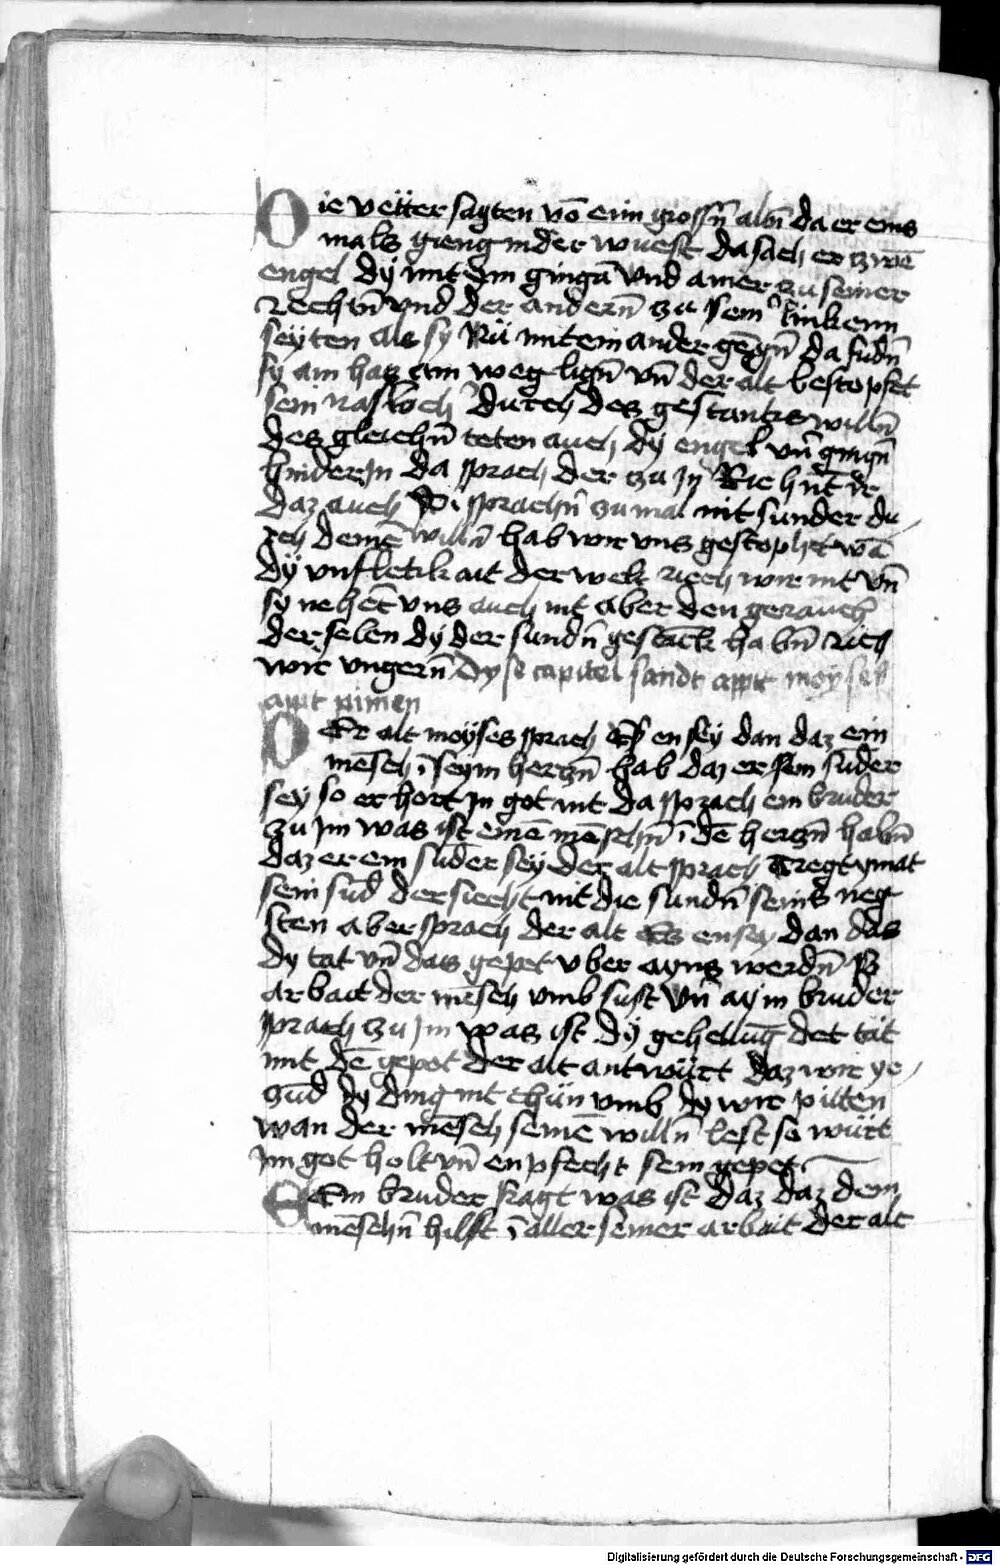 Die vetter sagten vō eim grossn̄ altn̄ da er eins
mals gieng in der wuest da sach er zwē
engel dÿ mit im gingn̄ vnd ainer zu seiner
rechtn̄ vnd der andern̄ zu seinˀ linkenn
seyten als sy Nü mit einander gēgn̄ da fūdn̄
sy ain haz am weg lign̄ vn̄ der alt bestopfet
sein nasloch durch des gestanks willn̄
des gleichn̄ teten auch dÿ engel vn̄ gingn̄
hinder in da sprach der zu in Riecht ir
daz auch Si sprachn̄ zumal nit sunder du
rch deinē willn̄ hab wir vns gestophet wā
dÿ vnfletikait der welt riech wir nit vn̄
sy nehēt vns auch nit aber den gerauch
der selben dÿ der sundn̄ gestāck habn̄ rich
wir vngern̄ Dyse capitel sandt appt moyses
appt pimen
Der alt moyses sprach Es en sey dan daz ein
mēsch ī seym herczn̄ hab daz er sein suder
sey so erhort in got nit da sprach ein bruder
zu im was ist einē mēschn̄ ī dē herczn̄ habn̄
daz er ein suder sey der alt sprach Tregt ymāt
sein sūd der siecht nit die sundn̄ seins neg
sten aber sprach der alt Es ensey dan das
dy tat vn̄ das gepet vber ayns werdn̄ So
arbait der mēsch vmb sust Vn̄ aym bruder
sprach zu im was ist dÿ gehellūg der tät
mit dē gepet der alt antwürt daz wir ye
zūd dy ding nit thün vmb dy wir pitten
wan der mēsch seinē willn̄ lest so würt
im got holt vn̄ enpfecht sein gepet
Ein bruder fragt was ist daz daz dem
mēschn̄ hilft ī aller seiner arbait der alt
Digitalisierung gefördert durch die Deutsche Forschungsgemeinschaft - DFG